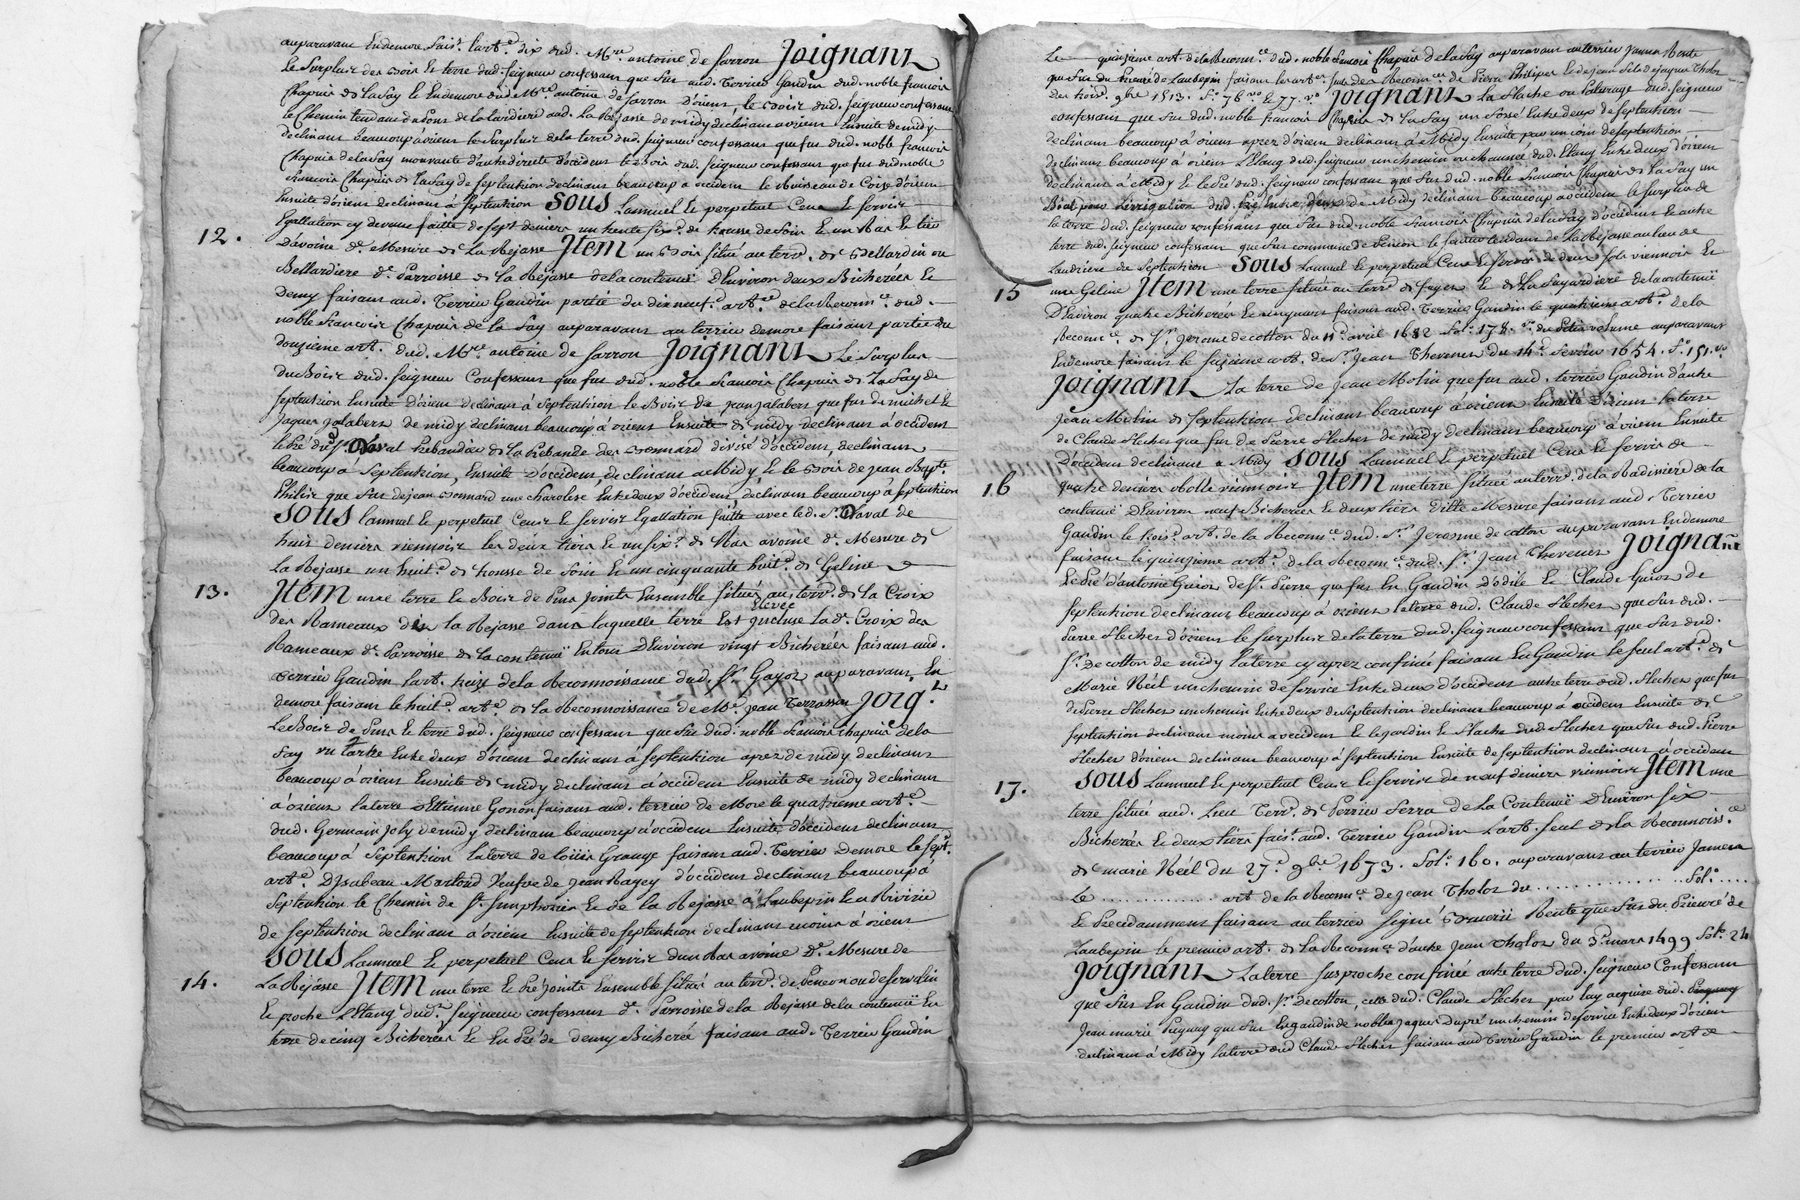 auparavant Endemore fais.t l'art.e dix dud. M.re antoine de sarron Joignant
Le Surplus des Bois Et terre dud. seigneur confessant que fut aud. Terrier Gaudin dud. noble francois
Chapuis De la fay Et Endemore dud. M.re antoine de Sarron D'orient, Le Bois dud. Seigneur confessant
le Chemin tendant de
declinant beaucoup à orient le Surplus de la terre dud. seigneur confessant que fut dud. noble francois
Chapuis de la fay mouvante d'autre directe d'occident Le Bois dud. Seigneur confessant que fut dud. noble
francois Chapuis De la fay de septentrion declinant beaucoup a occident le Ruisseau de Coise d'orient
Ensuite d'orient declinant a septentrion SOUS Lannuel Et perpetuel Cens Et servis
Egallation cy devant faitte de sept deniers un trente six.e de trousse de foin Et un Ras Et tiers
12. D'avoine d.e Mesure de La Rejasse JTEM un Bois situé au terr.e de Bellardin ou
Bellardiere d.e Parroisse de La Rejasse de la contenue D'Environ deux Bicherées Et
Demy faisant aud. Terrier Gaudin partie du dix neuf.e art.e de la Reconn.ce dud.
noble francois Chapuis de la fay auparavant au terrier demore faisant partie du
douzieme art. dud. M.re antoine de sarron Joignant Le Surplus
du Bois dud. seigneur Confessant que fut dud. noble francois Chapuis De La fay de
septentrion Ensuite d'orient declinant à septentrion le Bois de jean jalabert que fut de michel Et
jaques jalabert de midy declinant beaucoup à orient Ensuite de midy declinant à occident
le Pré dud. s.r Daval Prebandier de la Prebande des Bonnard divisé d'occident, declinant
beaucoup a septentrion, Ensuite D'occident, declinant a Midy, Et le Bois de jean Bapt.e
Philis que fut de jean Bonnard une charolese Entredeux d'occident, declinant beaucoup à septentrion
SOUS Lannuel Et perpetuel Cens Et servis Egallation faitte avec led. s.r Daval de
huit deniers viennois les deux tiers Et un six.e de Ras avoine d.e Mesure de
La Rejasse un huit.e de trousse de foin Et un cinquante huit.e de Geline
13. JTEM une terre Et Bois de Pins Joints Ensemble situés au terr.e de la Croix
des Rameaux de la Rejasse dans laquelle terre Est Elevée la d.e Croix des
Rameaux d.e Parroisse de la contenue En tout D'Environ vingt Bicherées faisant aud.
terrier Gaudin l'art. treize de la Reconnoissance dud. s.r Gayot auparavant En
demore faisant le huit.e art.e de la Reconnoissance de M.e jean Terrasson JOIG.T
Le Bois de Pins Et terre dud. seigneur confessant que fut dud. noble francois chapuis de la
fay un tertre Entre deux d'orient declinant à septentrion aprez de midy declinant
beaucoup à orient Ensuite de midy declinant a occident Ensuite de midy declinant
à orient la terre d'Ettienne Gonon faisant aud. terrier de More le quatrieme art.e
dud. Germain Joly de midy declinant beaucoup à occident Ensuite d'occident declinant
beaucoup à septentrion la terre de Loüis Grange faisant aud. Terrier Demore le sept.e
art.e D'Jsabeau Martoud Veufve de jean Ragey d'occident declinant beaucoup à
septentrion le Chemin de s.t simphorien Et de la Rejasse à Laubepin Et a Riviere
de septentrion declinant a orient Ensuite de septentrion declinant moins à orient
SOUS Lannuel Et perpetuel Cens Et servis d'un Ras avoine d.e Mesure de
14. La Rejasse JTEM une terre Et Pré Joints Ensemble situés au terr.e de
Et proche L'Etang dud. seigneur confessant d.e Parroisse de la Rejasse de la contenue En
terre de cinq Bicherées Et En Pré de demy Bicherée faisant aud. Terrier Gaudin
Le quinzieme art. de la Reconn.ce dud. noble francois Chapuis de la fay auparavant au terrier Jamen Rente
que fut du Prieuré de Laubepin faisant les art.es des Reconn.ces de Pierre Philipes Et de jean fils de jaques Tholot
des trois.e 9bre 1513. f.o 76 v.o Et 77. v.o Joignant la flache ou Paturage dud. seigneur
confessant que fut dud. noble francois Chapuis de la fay un fossé Entredeux de septentrion
declinant beaucoup à orient aprez d'orient declinant à Midy Ensuite par un coin de septentrion
declinant beaucoup à orient L'Etang dud. seigneur un chemin ou chaussée dud. Etang Entredeux d'orient
declinant à Midy Et le Pré dud. seigneur confessant que fut dud. noble francois Chapuis de la fay un
Béal pour L'irrigation dud. Pré Entre deux de Midy declinant beaucoup a occident le surplus de
la terre dud. seigneur confessant que fut dud. noble francois Chapuis de la fay d'occident Et autre
terre dud. seigneur confessant que fut
de septentrion SOUS Lannuel Et perpetuel Cens Et servis de deux sols viennois Et
15 une Geline JTEM une terre située au terr.e de fayet Et de La fayardiere de la contenue
D'Environ quatre Bicherées Et cinq faisant aud. Terrier Gaudin le quatrieme art.e de la
Reconn.ce de s.r Jerome de cotton du 11.e avril 1682 fol.o 178. v.o du Petit volume auparavant
Endemore faisant le sixieme art. de s.r Jean Thevenet du 14.e fevrier 1654. f.o 151. v.o
Joignant La terre de jean Molin que fut aud. terrier Gaudin d'autre
Jean Molin de septentrion declinant beaucoup à orient Ensuite d'orient la terre
de Claude flechet que fut de Pierre flechet de midy declinant beaucoup à orient Ensuite
d'occident declinant a Midy SOUS Lannuel Et perpetuel Cens Et servis de
16 quatre deniers obolle viennois JTEM une terre située au terr.e de la Radisiere de la
contenue D'Environ neuf Bicherées Et deux tiers ditte Mesure faisant aud. Terrier
Gaudin Le trois.e art. de la Reconn.ce dud. s.r Jerosme de cotton auparavant Endemore
faisant le quinzieme art.e de la Reconn.ce dud. s.r Jean Thevenet Joignant
Le Pré d'antoine Guiot de f.t Pierre que fut En Gaudin d'odile Et Claude Guiot de
septentrion declinant beaucoup à orient la terre dud. Claude flechet que fut dud.
Pierre flechet d'orient le surplus de la terre dud. seigneur confessant que fut dud.
s.r de cotton de midy la terre cy aprez confinée faisant En Gaudin le seul art.e de
Marie Néel un chemin de service Entre deux d'occident autre terre dud. flechet que fut
de Pierre flechet un chemin Entredeux de septentrion declinant beaucoup à occident Ensuite de
septentrion declinant moins a occident Et le jardin Et flache dud. flechet que fut dud. Pierre
flechet d'orient declinant beaucoup à septentrion Ensuite de septentrion declinant a occident
17. SOUS Lannuel Et perpetuel Cens Et servis de neuf deniers viennois JTEM une
terre située aud. Lieu Terr.e de Perrier Serra de la Contenue D'Environ six
Bicherées Et deux tiers fais.t aud. Terrier Gaudin L'art. seul de la Reconnoiss.ce
de marie Néel du 27.e 9bre 1673. fol.o 160. auparavant au terrier Jamen
Le ............ art de la Reconn.ce de jean Tholot du ............ fol.o ....
Et Precedamment faisant au terrier signé Rente que fut du Prieuré de
Laubepin le premier art. de la Reconn.ce d'autre jean Tholot du 3.e mars 1499 fol.o 24
Joignant La terre susproche confinée autre terre dud. seigneur Confessant
que fut En Gaudin dud. s.r de cotton, celle dud. Claude flechet par luy acquise dud.
Jean marie Pugnug que fut En gaudin de noble jaques Dupré un chemin de service Entredeux d'orient
declinant à Midy la terre dud. Claude flechet faisant aud. Terrier Gaudin le premier art. de